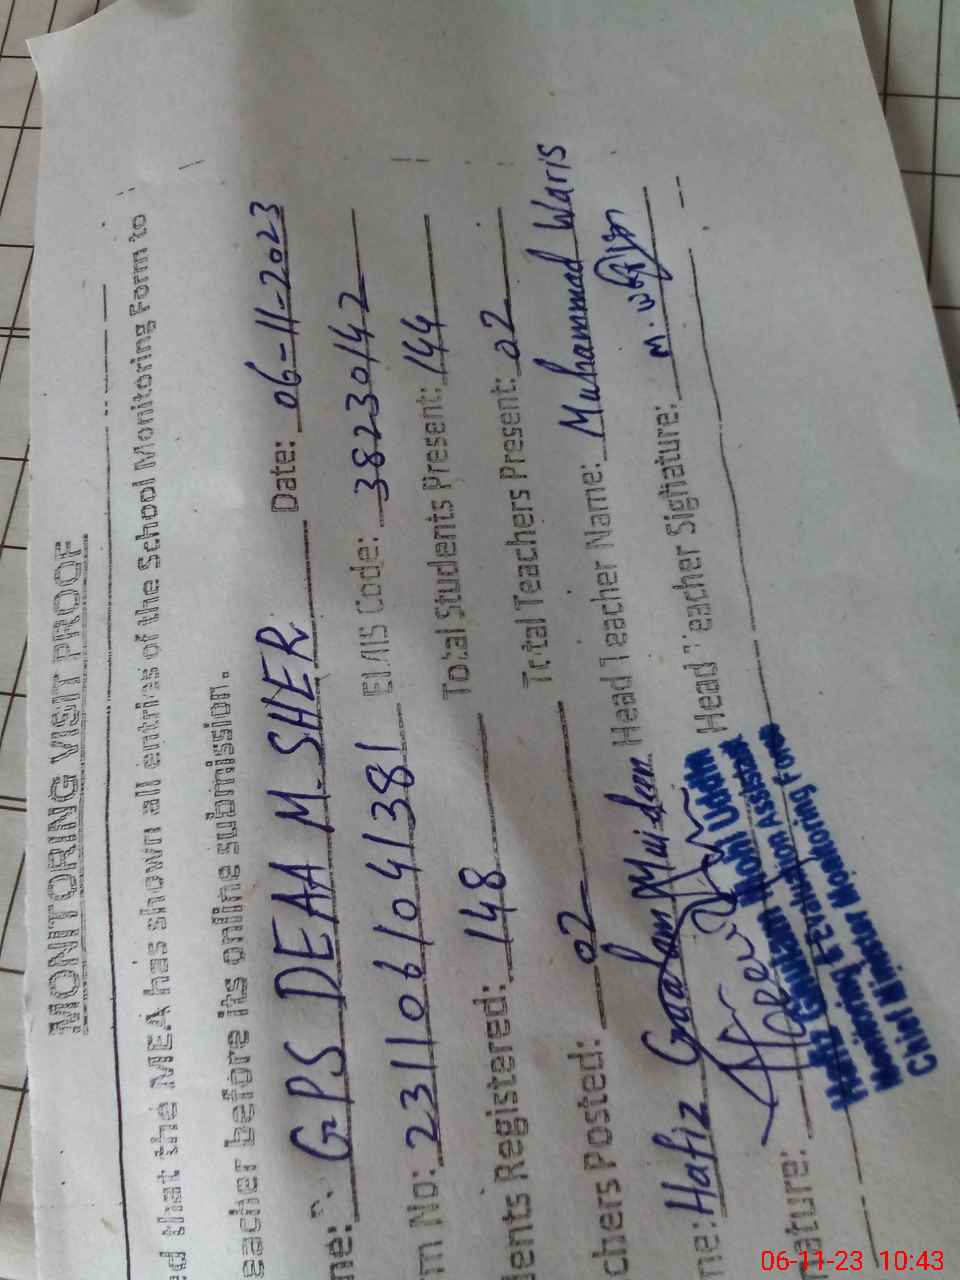 MONITORING VISIT PROOF
ed that the MEA has shown all entries of the School Monitoring Form to
eacher before its online submission.
me: GPS DEAA M. SHER Date: 06-11-2023
rm No: 2311061041381 EMIS Code: 38230142
dents Registered: 148 Total Students Present: 144
chers Posted: 02 Total Teachers Present: 02
me: Hafiz Gulam Muideen Head Teacher Name: Muhammad Waris
nature: Head Teacher Signature:
Hafiz Ghulam Mohi Uddin
Monitoring & Evaluation Assistant
Chief Minister Monitoring Force
06-11-23 10:43